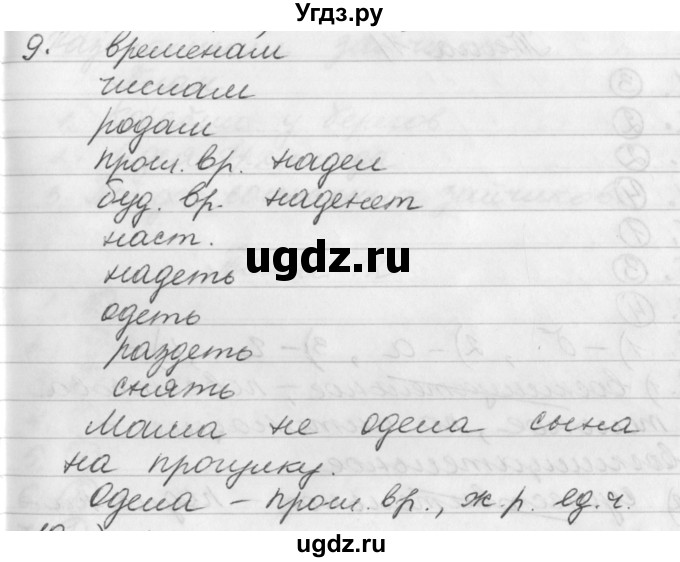 Угдз.ру
9. временам
числам
родам
прош. вр. надел
буд. вр. наденет
наст.
ugdz.ru
надеть
одеть
раздеть
снять
Мама не одела сына
на прогулку.
Одела – прош. вр., ж. р. ед. ч.
ugdz.ru